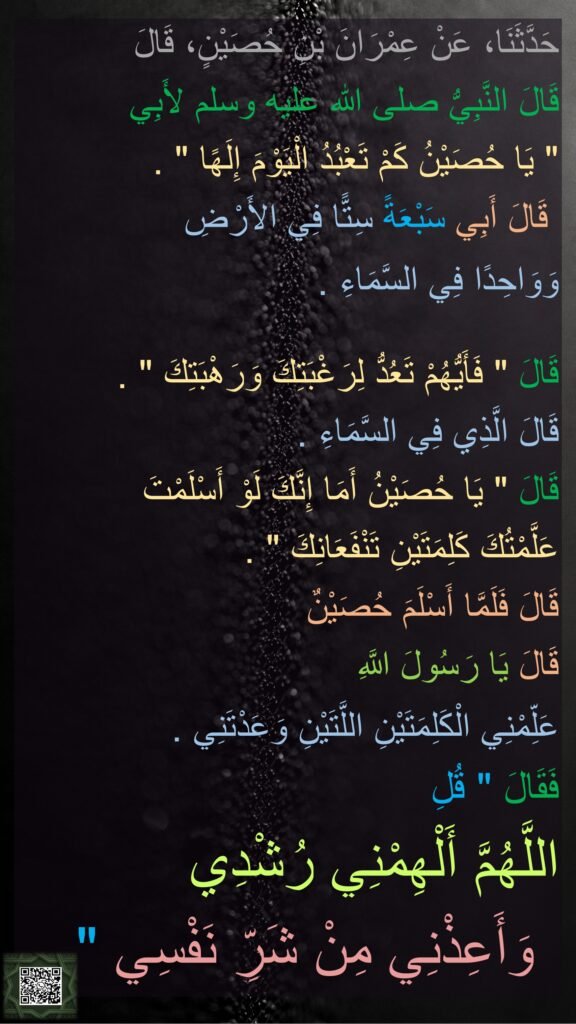 حَدَّثَنَا، عَنْ عِمْرَانَ بْنِ حُصَيْنٍ، قَالَ
قَالَ النَّبِيُّ صلى الله عليه وسلم لأَبِي
" يَا حُصَيْنُ كَمْ تَعْبُدُ الْيَوْمَ إِلَهًا " .
قَالَ أَبِي سَبْعَةً سِتًّا فِي الأَرْضِ
وَوَاحِدًا فِي السَّمَاءِ .
قَالَ " فَأَيُّهُمْ تَعُدُّ لِرَغْبَتِكَ وَرَهْبَتِكَ " .
قَالَ الَّذِي فِي السَّمَاءِ .
قَالَ " يَا حُصَيْنُ أَمَا إِنَّكَ لَوْ أَسْلَمْتَ
عَلَّمْتُكَ كَلِمَتَيْنِ تَنْفَعَانِكَ " .
قَالَ فَلَمَّا أَسْلَمَ حُصَيْنٌ
قَالَ يَا رَسُولَ اللَّهِ
عَلِّمْنِي الْكَلِمَتَيْنِ اللَّتَيْنِ وَعَدْتَنِي .
فَقَالَ " قُلِ
اللَّهُمَّ أَلْهِمْنِي رُشْدِي
وَأَعِذْنِي مِنْ شَرِّ نَفْسِي "